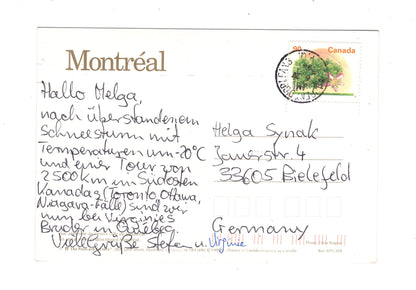 Montréal
90 Canada
Hallo Helga,
nach überstandenem
Schneesturm mit
Temperaturen um -20°C
und einer Tour von
2500 km im Südosten
Kanadas (Toronto, Ottawa,
Niagara-Fälle) sind wir
nun bei Virginies
Bruder in Québec.
Viele Grüße Stefan u. Virginie
Helga Synak
Jauerstr. 4
33605 Bielefeld
Germany